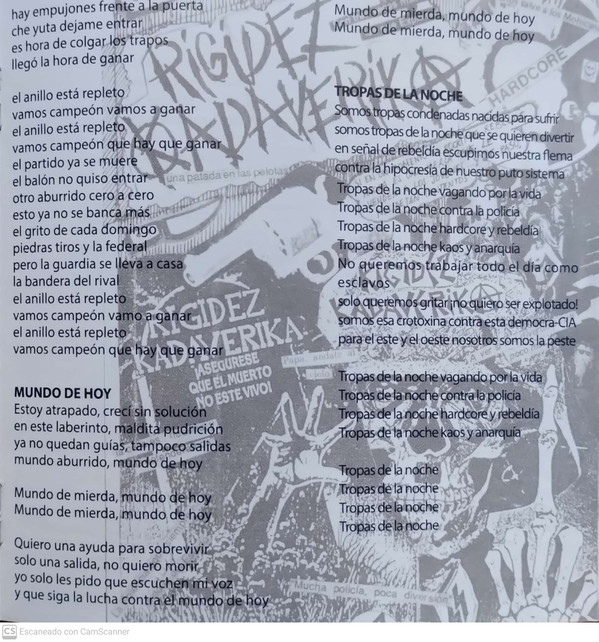 hay empujones frente a la puerta
che yuta dejame entrar
es hora de colgar los trapos
llegó la hora de ganar
el anillo está repleto
vamos campeón vamos a ganar
el anillo está repleto
vamos campeón que hay que ganar
el partido ya se muere
el balón no quiso entrar
otro aburrido cero a cero
esto ya no se banca más
el grito de cada domingo
piedras tiros y la federal
pero la guardia se lleva a casa
la bandera del rival
el anillo está repleto
vamos campeón vamo a ganar
el anillo está repleto
vamos campeón que hay que ganar
MUNDO DE HOY
Estoy atrapado, crecí sin solución
en este laberinto, maldita pudrición
ya no quedan guías, tampoco salidas
mundo aburrido, mundo de hoy
Mundo de mierda, mundo de hoy
Mundo de mierda, mundo de hoy
Quiero una ayuda para sobrevivir
solo una salida, no quiero morir
yo solo les pido que escuchen mi voz
y que siga la lucha contra el mundo de hoy
Mundo de mierda, mundo de hoy
Mundo de mierda, mundo de hoy
TROPAS DE LA NOCHE
Somos tropas condenadas nacidas para sufrir
somos tropas de la noche que se quieren divertir
en señal de rebeldía escupimos nuestra flema
contra la hipocresía de nuestro puto sistema
Tropas de la noche vagando por la vida
Tropas de la noche contra la policía
Tropas de la noche hardcore y rebeldía
Tropas de la noche kaos y anarquía
No queremos trabajar todo el día como
esclavos
solo queremos gritar ¡no quiero ser explotado!
somos esa crotoxina contra esta democra-CIA
para el este y el oeste nosotros somos la peste
Tropas de la noche vagando por la vida
Tropas de la noche contra la policía
Tropas de la noche hardcore y rebeldía
Tropas de la noche kaos y anarquía
Tropas de la noche
Tropas de la noche
Tropas de la noche
Tropas de la noche
RIGIDEZ
KADAVERIKA
HARDCORE
una patada en las pelotas
RIGIDEZ
KADAVERIKA
¡ASEGURESE
QUE EL MUERTO
NO ESTE VIVO!
Mucha policía, poca diversión
CS Escaneado con CamScanner